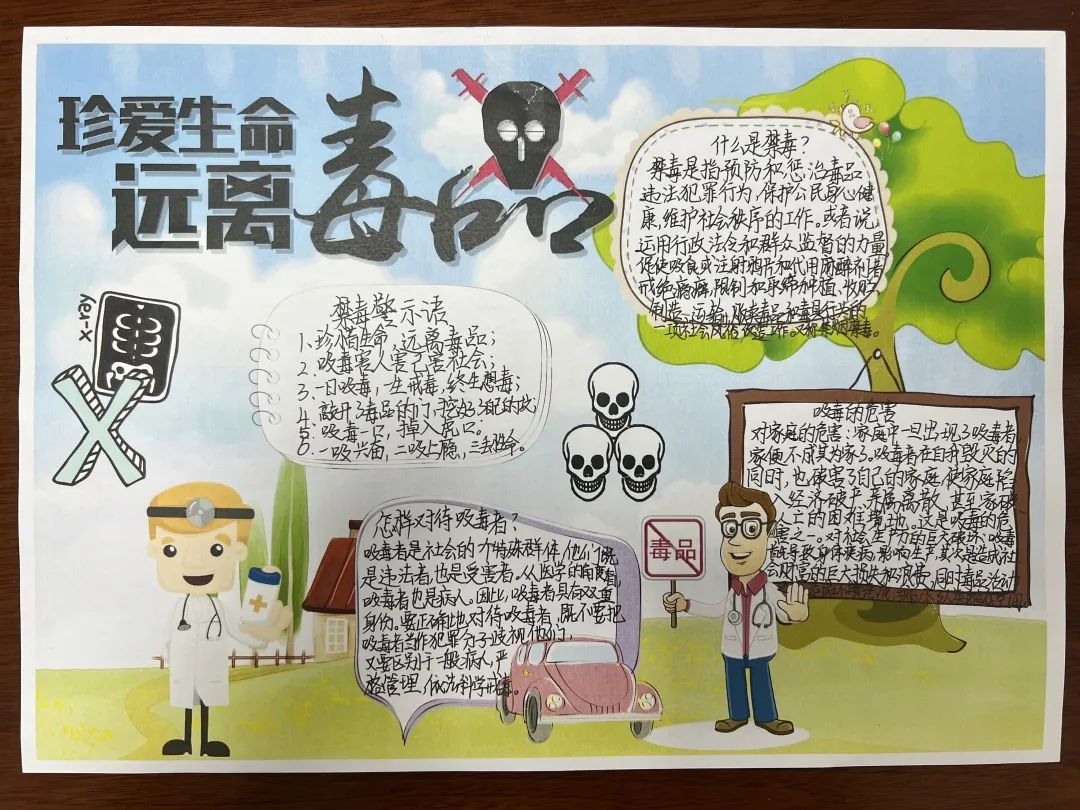 珍爱生命
远离毒品
什么是禁毒？
禁毒是指预防和惩治毒品
违法犯罪行为，保护公民身心健
康，维护社会秩序的工作。或者说，
运用行政法令和群众监督的力量
促使吸食或注射鸦片和代用麻醉剂者
戒绝瘾癖，限制和取缔种植、收贮
制造、运输、贩卖毒品和毒具行为的
一项社会风俗改造工作。又称禁烟禁毒。
x-ray
禁毒警示语
1、珍惜生命，远离毒品；
2、吸毒害人害己害社会；
3、一日吸毒，一生戒毒，终生想毒；
4、敲开了毒品的门，挖好了自己的坟
5、吸毒一口，掉入虎口。
6、一吸兴奋，二吸上瘾，三丢性命。
吸毒的危害
对家庭的危害：家庭中一旦出现了吸毒者
家便不成其为家了。吸毒者在自我毁灭的
同时，也破害了自己的家庭，使家庭陷
入经济破产、亲属离散、甚至家破
人亡的困难境地。这是吸毒的危
害之一。对社会生产力的巨大破坏：吸毒
既导致身体疾病，影响生产，其次是造成社
会财富的巨大损失和浪费，同时毒品活动
怎样对待吸毒者？
吸毒者是社会的一个特殊群体，他们既
是违法者，也是受害者。从医学的角度看，
吸毒者也是病人。因此，吸毒者具有双重
身份。要正确地对待吸毒者，既不要把
吸毒者当作犯罪分子歧视他们，
又要区别于一般病人，严
格管理，依法科学戒毒。
毒品